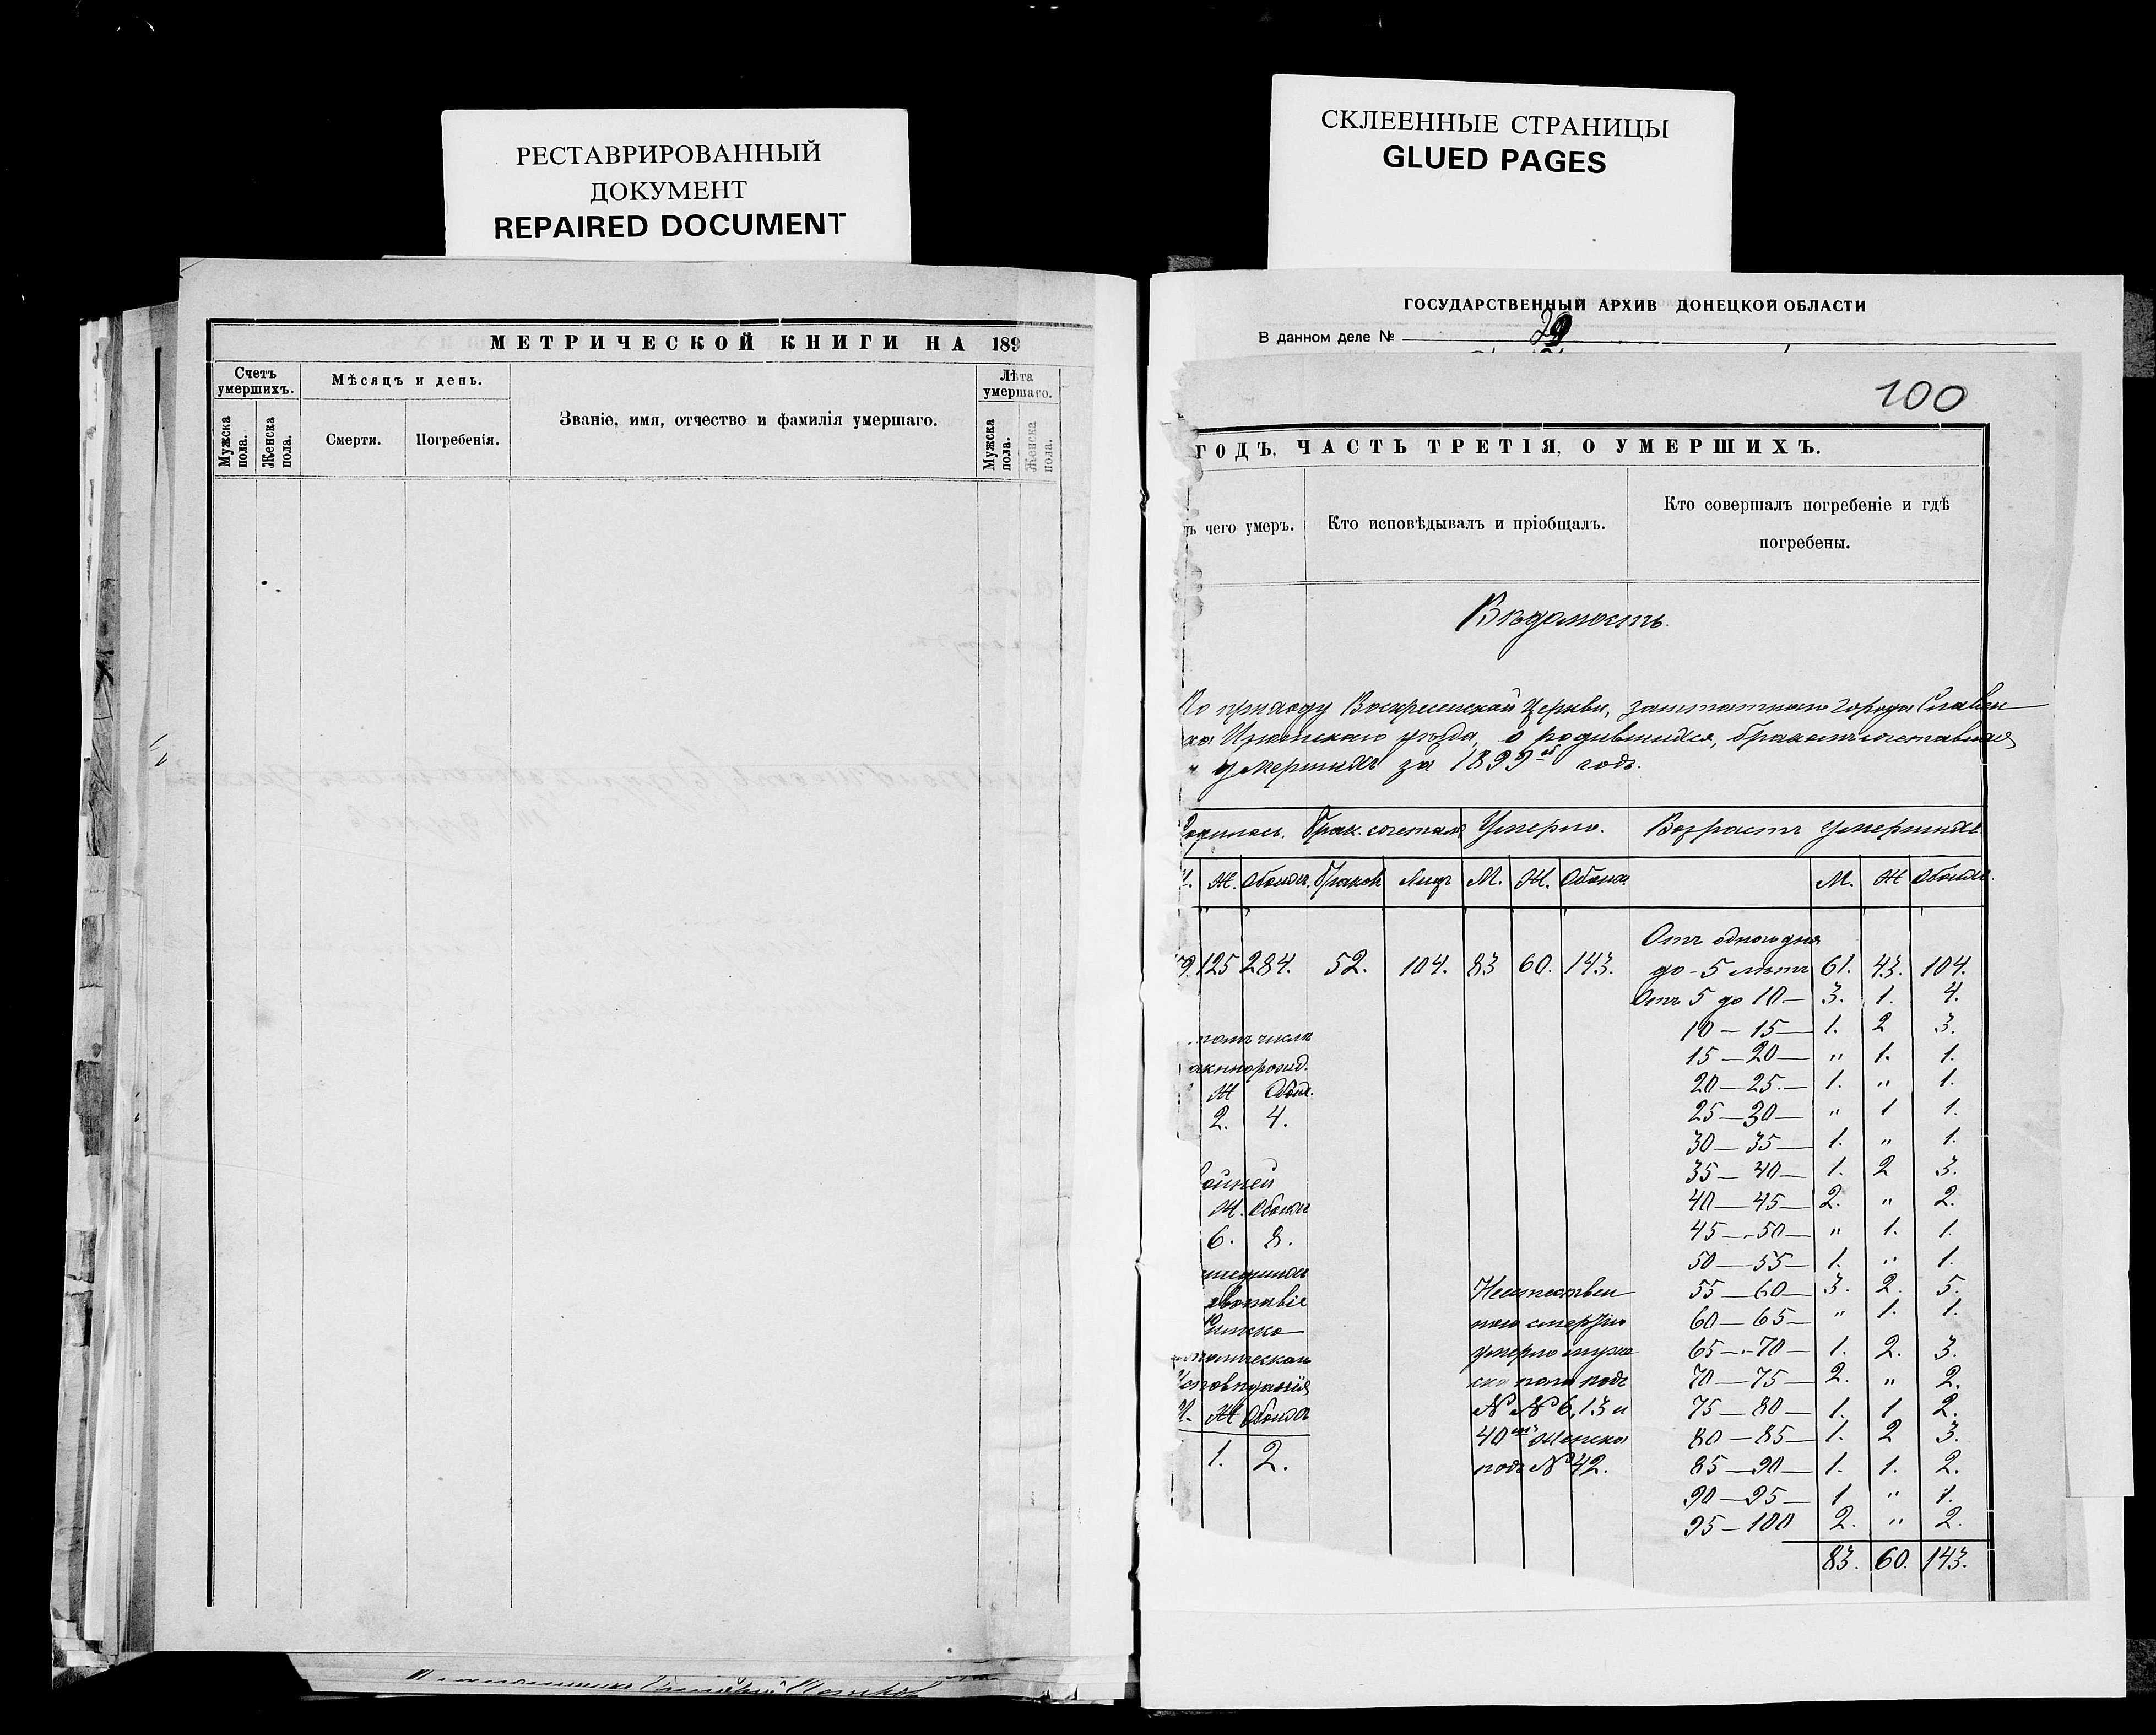 РЕСТАВРИРОВАННЫЙ
ДОКУМЕНТ
REPAIRED DOCUMENT
МЕТРИЧЕСКОЙ КНИГИ НА 189
Счетъ умершихъ.
Мужска пола.
Женска пола.
Мѣсяцъ и день.
Смерти.
Погребенія.
Званіе, имя, отчество и фамилія умершаго.
Лѣта умершаго.
Мужска пола.
Женска пола.
СКЛЕЕННЫЕ СТРАНИЦЫ
GLUED PAGES
ГОСУДАРСТВЕННЫЙ АРХИВ ДОНЕЦКОЙ ОБЛАСТИ
В данном деле №
100
ГОДЪ, ЧАСТЬ ТРЕТІЯ, О УМЕРШИХЪ.
ъ чего умеръ.
Кто исповѣдывалъ и пріобщалъ.
Кто совершалъ погребеніе и гдѣ
погребены.
Вѣдомость.
По приходу Воскресенской Церкви, заштатнаго города Славян
ска Изюмскаго уѣзда, о родившихся, бракомъ сочетавшихся
и умершихъ за 1899й годъ.
Родилось. Брак. сочетал. Умерло. Возрастъ умершихъ
Ж. Обоихъ. Браков Лицъ М. Ж. Обоихъ М. Ж Обоихъ.
Отъ одного дня
9. 125 284. 52. 104. 83 60. 143. до - 5 лѣтъ 61. 43. 104.
Отъ 5 до 10 — 3. 1. 4.
10 — 15 — 1. 2 3.
томъ числѣ
15 — 20 — " 1. 1.
акннорожд.
20 — 25 — 1. " 1.
Ж Обоих.
25 — 30 — " 1 1.
2. 4.
30 — 35 — 1. " 1.
35 — 40 — 1. 2 3.
ойней
40 — 45 — 2. " 2.
Ж. Обоихъ
45 — 50 — " 1. 1.
6. 8.
50 — 55 — 1. " 1.
шедшихъ
Неестествен 55 — 60 — 3. 2. 5.
авославіе
ною смертію 60 — 65 — " 1. 1.
Римско
умерло муже 65 — 70 — 1. 2. 3.
толическаго
ска пола подъ 70 — 75 — 2. " 2.
исповѣданія
№ № 6, 13 и 75 — 80 — 1. 1 2.
М. Ж Обоихъ
40мъ Женска 80 — 85 — 1. 2 3.
1. 2.
подъ № 42. 85 — 90 — 1. 1. 2.
90 — 95 — 1 " 1.
95 — 100 2. " 2.
83. 60. 143.